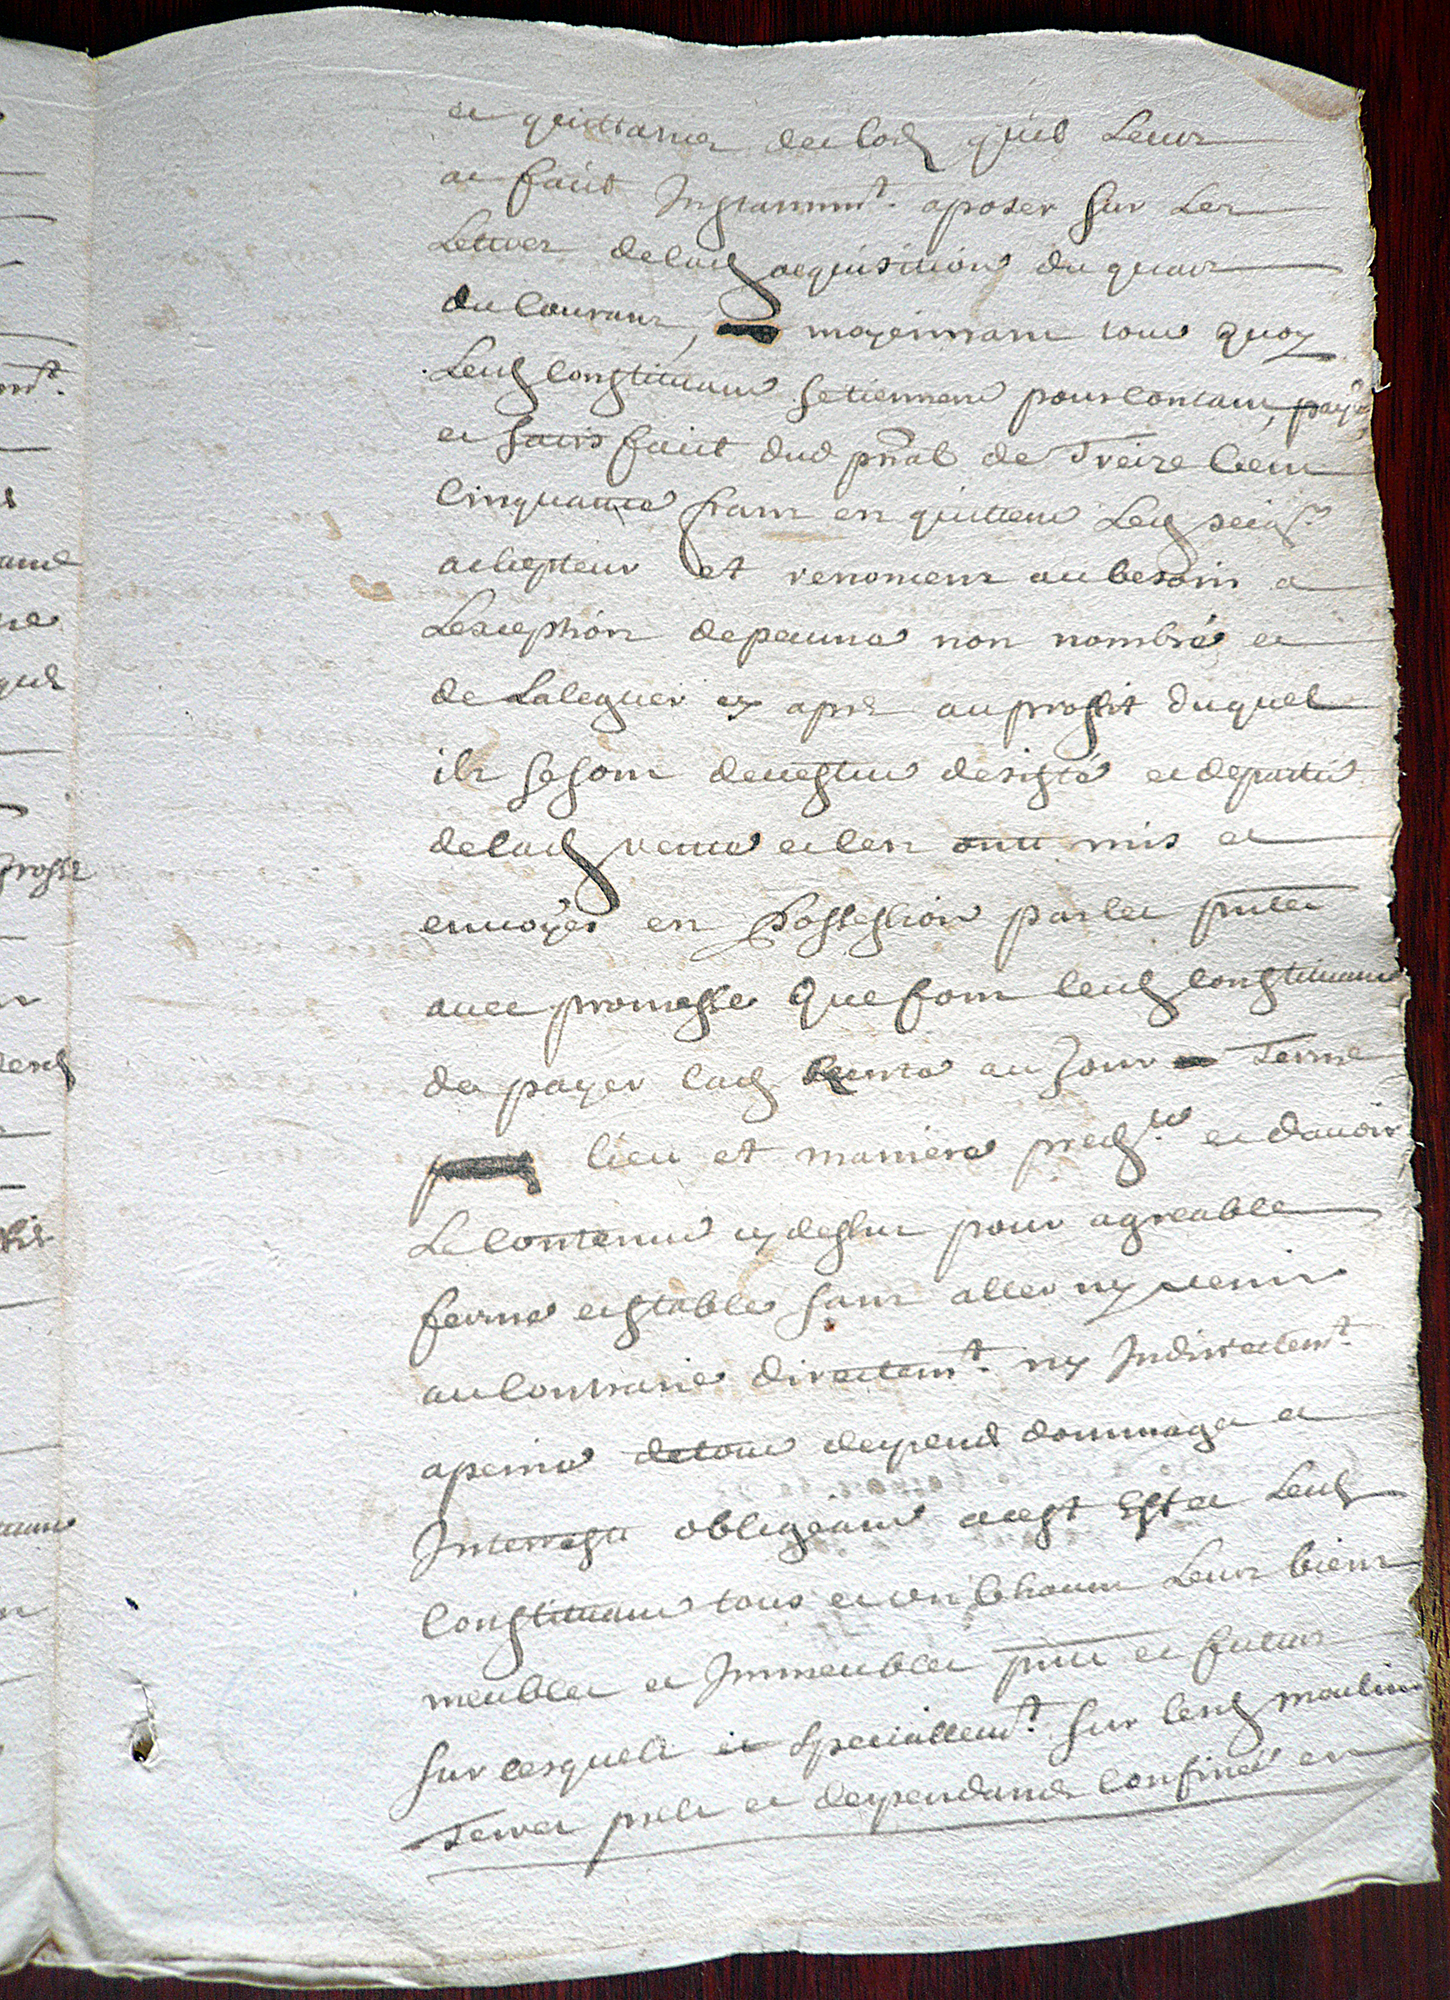 et quittance des lods quils Leurs
a fait Instamm.t aposer sur Les
Lettres delad acquisition du quatre
du Courant, moyennant tout quoy
Lesd Constituant se tiennent pour Contant, payé
et satisfait dud pñal de Treize Cent
Cinquante franc en quittent Led seig.r
achepteur et renoncent au besoin a
Lexception depecune non nombré et
de Laleguer cy apres au proffit duquel
ils se sont devestu desisté et departu
delad vente et len ont mis et
envoyés en Possession par les pñtes
avec promesse que font lesd Constituant
de payer lad Rente au Jour Terme
lieu et maniere pred.te et davoir
Le Contenu cy dessus pour agreable
ferme et stable sans aller ny venir
au Contraire directem.t ny Indirectem.t
a peine de tout depend dommage et
Interrests obligeant a cest Effet Lesd
Constituant tous et un Chacun Leurs biens
meubles et Immeubles pñts et futurs
sur lesquels et speciallem.t sur lesd moulins
Terres prels et dependance Confinés en
grosse